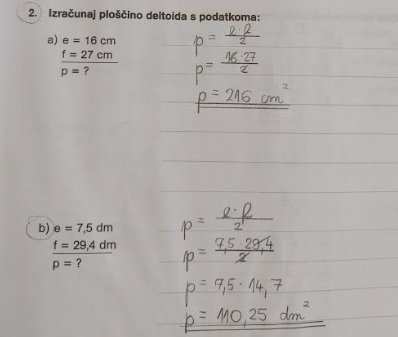 2. Izračunaj ploščino deltoida s podatkoma:
a) e = 16 cm
f = 27 cm
p = ?
p = e·f/2
p = 16·27/2
p = 216 cm²
b) e = 7,5 dm
f = 29,4 dm
p = ?
p = e·f/2
p = 7,5·29,4/2
p = 7,5·14,7
p = 110,25 dm²